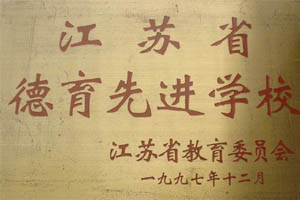 江苏省
德育先进学校
江苏省教育委员会
一九九七年十二月